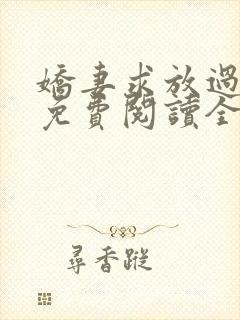 嬌妻求放過
免費閱讀全
尋香蹤